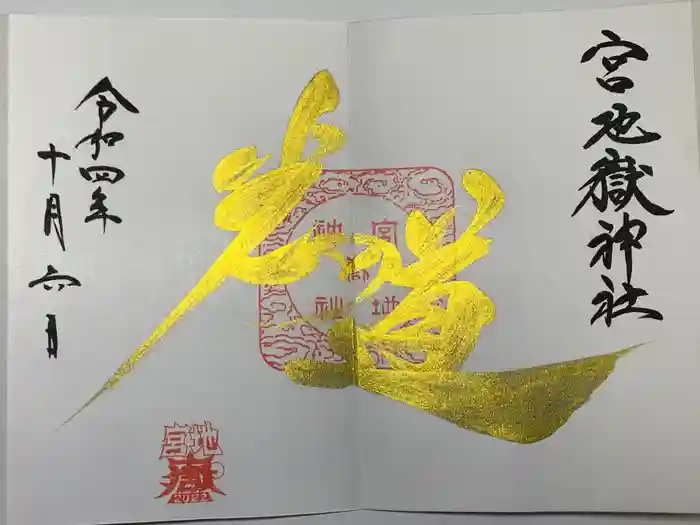 宮地嶽神社
光道
令和四年
十月六日
宮地嶽神社
宮地嶽